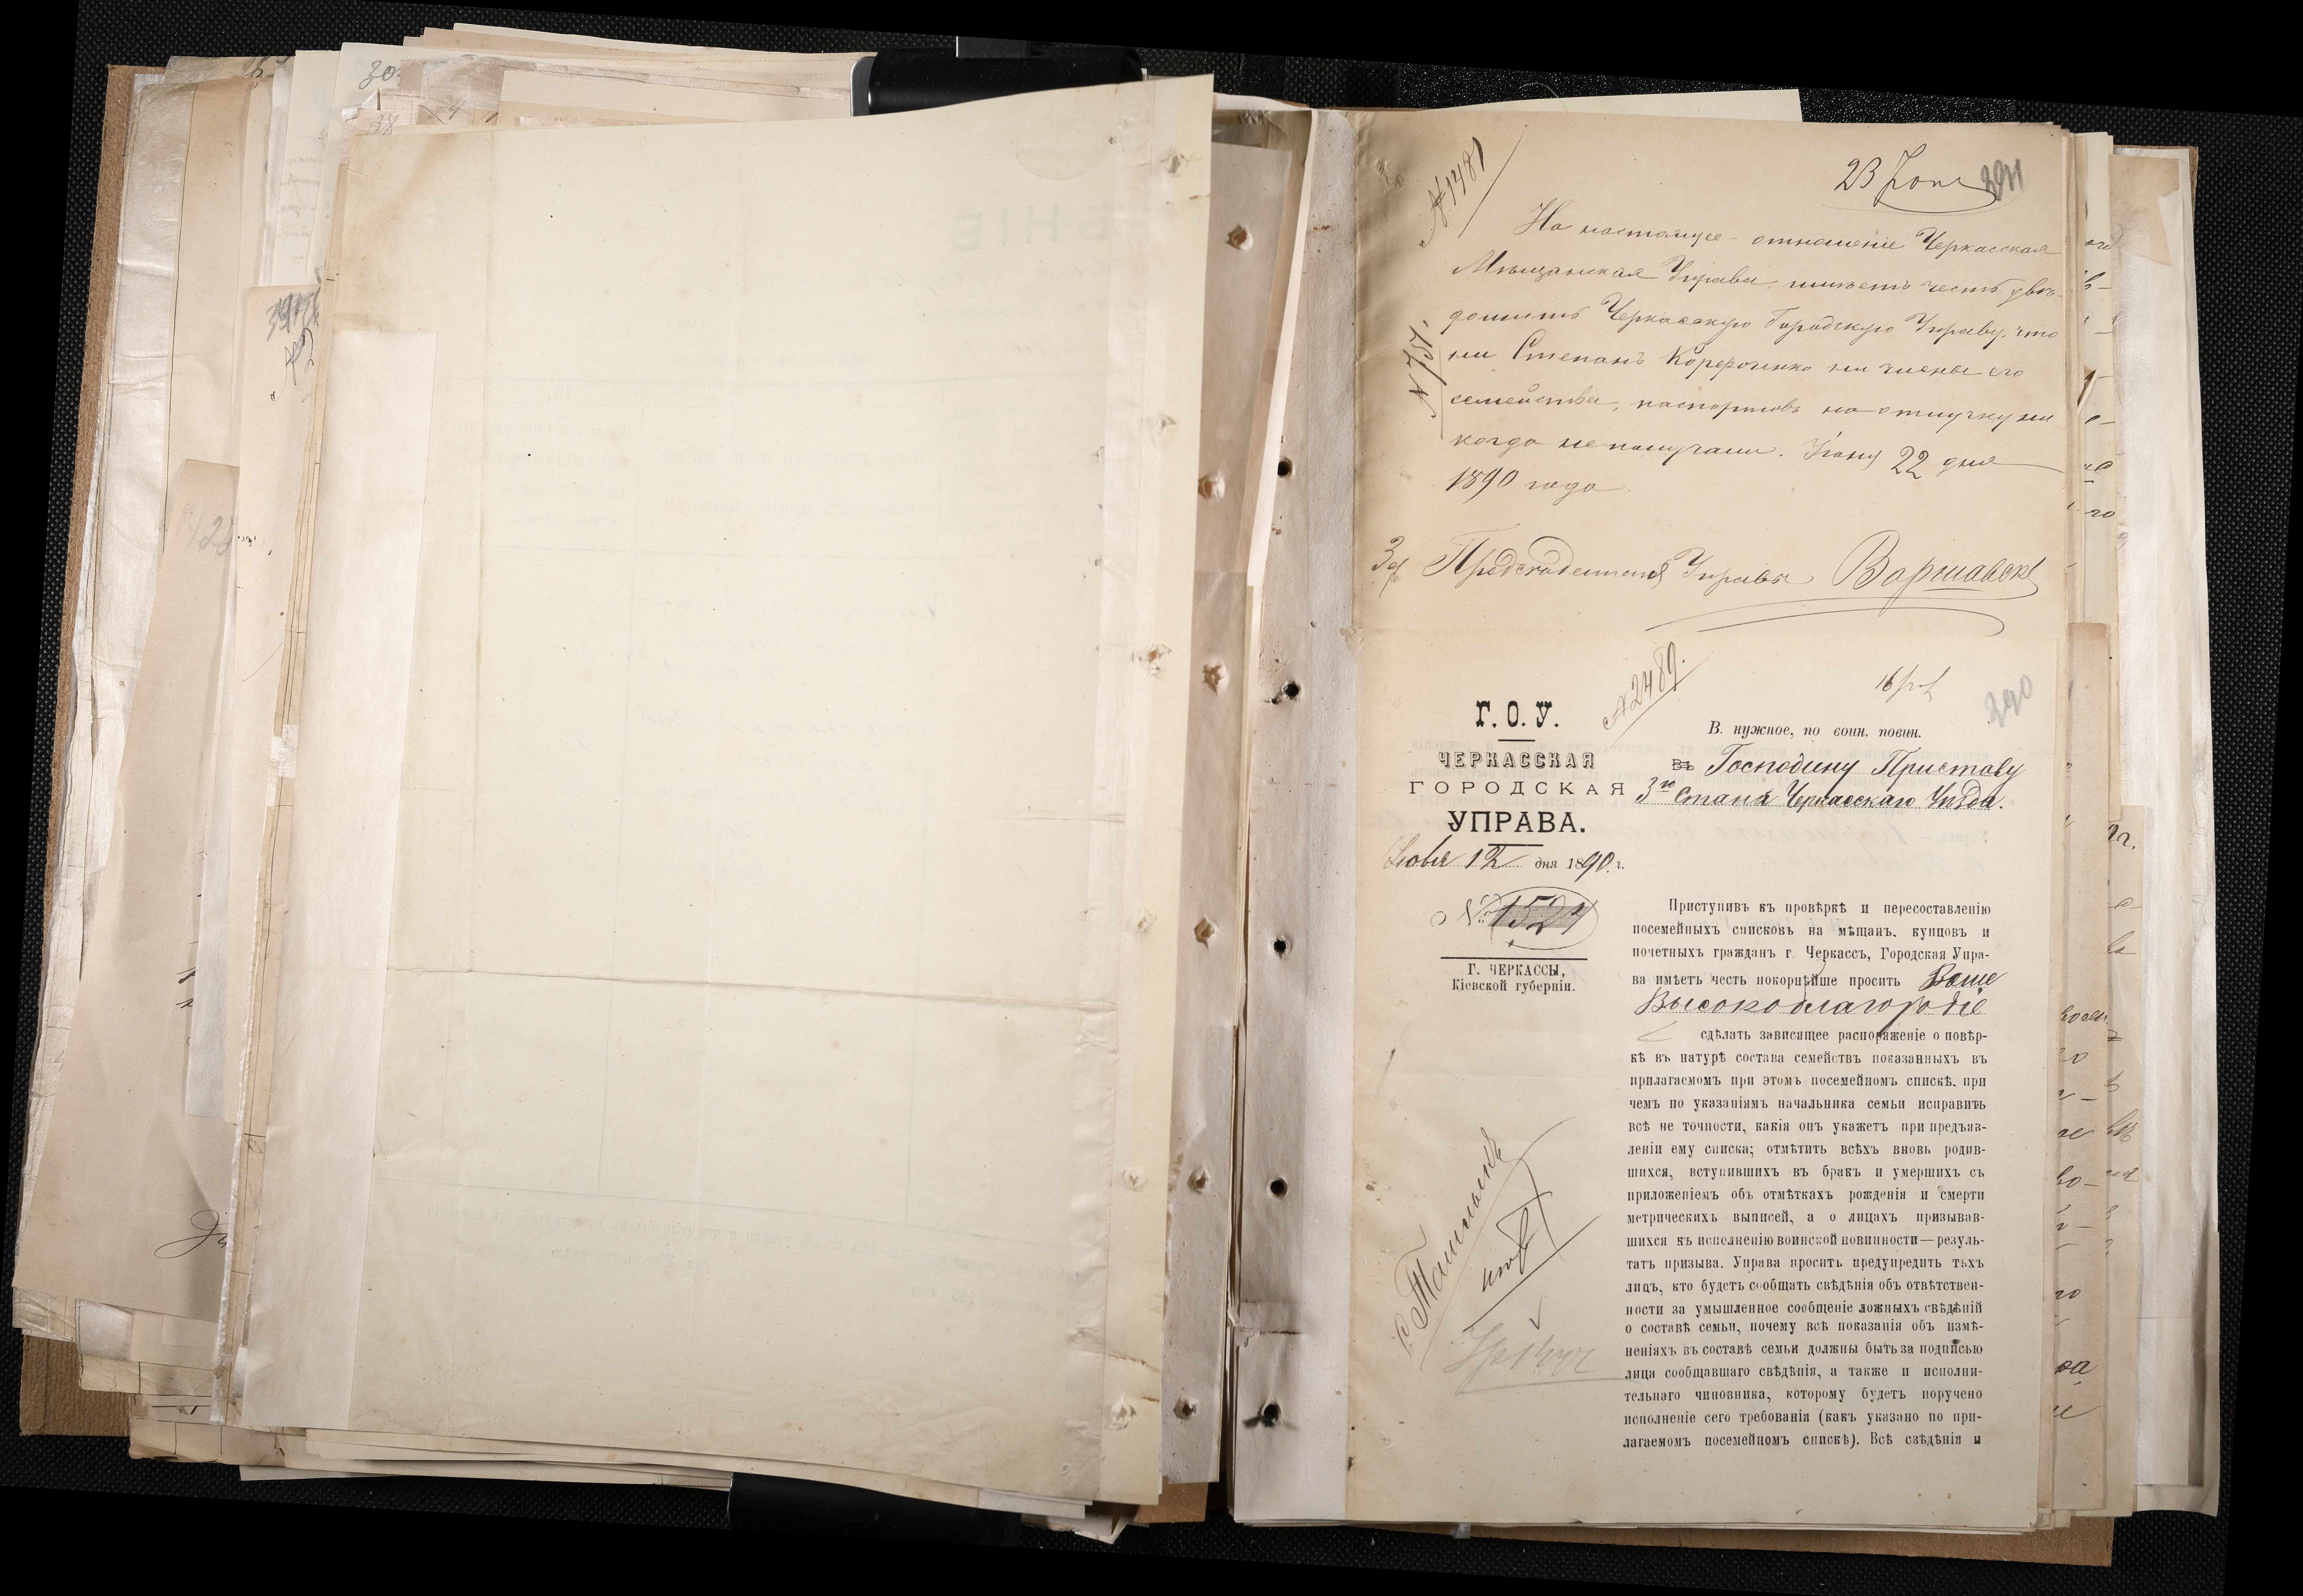 30
23 Іюня
391
№ 1481
№ 757.
На настоящее отношеніе Черкасская
Мѣщанская Управа имѣетъ честь увѣ-
домить Черкасскую Городскую Управу, что
ни Степанъ ни члены его
семейства, паспортовъ на отлучку ни
когда не получали. Іюня 22 дня
1890 года
За Предсѣдателя Управы
№ 2489.
390
Г. О. У.
ЧЕРКАССКАЯ
ГОРОДСКАЯ
УПРАВА.
Іюня 12 дня 1890 г.
№ 1524
Г. ЧЕРКАССЫ,
Кіевской губерніи.
В. нужное, по воин. повин.
Въ Господину Приставу
3го Стана Черкасскаго Уѣзда.
Приступивъ къ провѣркѣ и пересоставленію
посемейныхъ списковъ на мѣщанъ, купцовъ и
почетныхъ гражданъ г. Черкассъ, Городская Упра-
ва имѣетъ честь покорнѣйше просить Ваше
Высокоблагородіе
сдѣлать зависящее распоряженіе о повѣр-
кѣ въ натурѣ состава семействъ показанныхъ въ
прилагаемомъ при этомъ посемейномъ спискѣ, при
чемъ по указаніямъ начальника семьи исправить
всѣ не точности, какія онъ укажетъ при предъяв-
леніи ему списка; отмѣтить всѣхъ вновь родив-
шихся, вступившихъ въ бракъ и умершихъ съ
приложеніемъ объ отмѣткахъ рожденія и смерти
метрическихъ выписей, а о лицахъ призывав-
шихся къ исполненію воинской повинности—резуль-
татъ призыва. Управа проситъ предупредить тѣхъ
лицъ, кто будетъ сообщать свѣдѣнія объ отвѣтствен-
ности за умышленное сообщеніе ложныхъ свѣдѣній
о составѣ семьи, почему всѣ показанія объ измѣ-
неніяхъ въ составѣ семьи должны быть за подписью
лица сообщавшаго свѣдѣнія, а также и исполни-
тельнаго чиновника, которому будетъ поручено
исполненіе сего требованія (какъ указано по при-
лагаемомъ посемейномъ спискѣ). Всѣ свѣдѣнія и